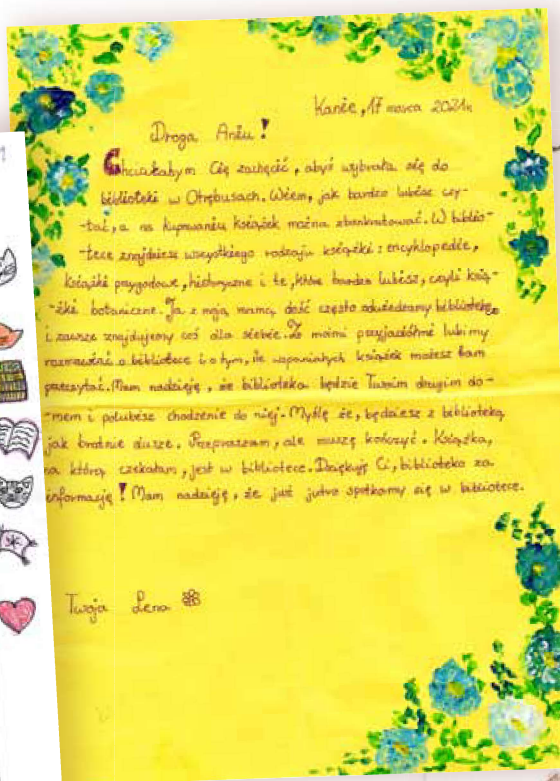 Kanie, 17 marca 2021r.
Droga Aniu!
Chciałabym Cię zachęcić, abyś wybrała się do
biblioteki w Otrębusach. Wiem, jak bardzo lubisz czy-
-tać, a na kupowaniu książek można zbankrutować. W biblio-
-tece znajdziesz wszystkiego rodzaju książki: encyklopedie,
książki przygodowe, historyczne i te, które bardzo lubisz, czyli ksią-
-żki botaniczne. Ja z moją mamą dość często odwiedzamy bibliotekę
i zawsze znajdujemy coś dla siebie. Z moimi przyjaciółmi lubimy
rozmawiać o bibliotece i o tym, ile wspaniałych książek możesz tam
przeczytać. Mam nadzieję, że biblioteka będzie Twoim drugim do-
-mem i polubisz chodzenie do niej. Myślę że, będziesz z biblioteką
jak bratnie dusze. Przepraszam, ale muszę kończyć. Książka,
na którą czekałam, jest w bibliotece. Dziękuję Ci, biblioteko za
informację! Mam nadzieję, że już jutro spotkamy się w bibliotece.
Twoja Lena